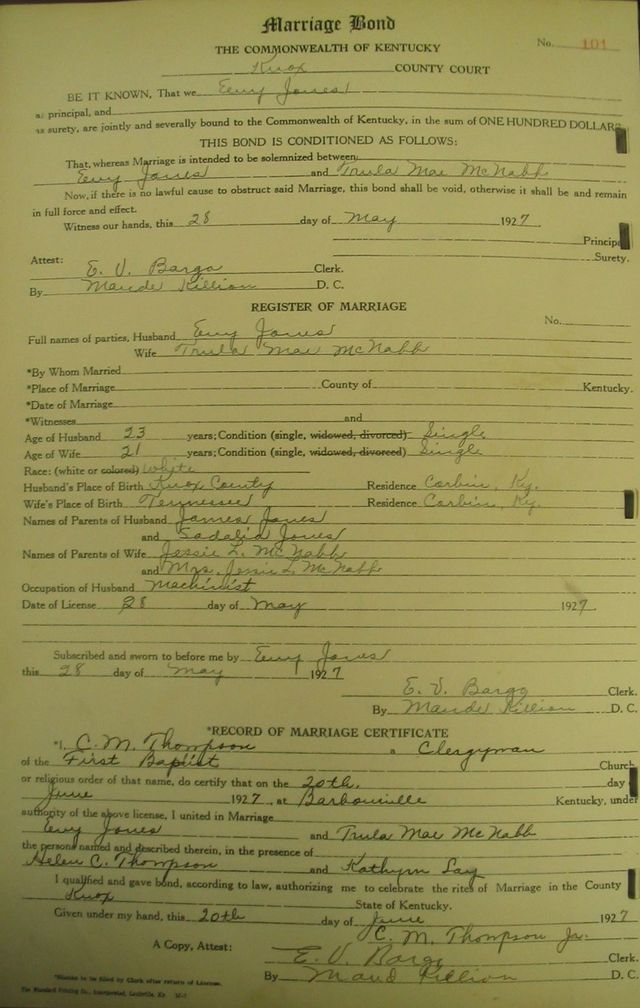 Marriage Bond
THE COMMONWEALTH OF KENTUCKY
No. 101
Knox COUNTY COURT
BE IT KNOWN, That we Evvy Jones
as principal, and
as surety, are jointly and severally bound to the Commonwealth of Kentucky, in the sum of ONE HUNDRED DOLLARS
THIS BOND IS CONDITIONED AS FOLLOWS:
That, whereas Marriage is intended to be solemnized between
Evvy Jones and Trula Mae McNabb
Now, if there is no lawful cause to obstruct said Marriage, this bond shall be void, otherwise it shall be and remain
in full force and effect.
Witness our hands, this 28 day of May 1927
Principa
Surety.
Attest:
E. V. Bargo Clerk.
By Maude Killion D. C.
REGISTER OF MARRIAGE
No.
Full names of parties, Husband Evvy Jones
Wife Trula Mae McNabb
*By Whom Married
*Place of Marriage County of Kentucky.
*Date of Marriage
*Witnesses and
Age of Husband 23 years; Condition (single, widowed, divorced) Single
Age of Wife 21 years; Condition (single, widowed, divorced) Single
Race: (white or colored) White
Husband's Place of Birth Knox County Residence Corbin, Ky.
Wife's Place of Birth Tennessee Residence Corbin, Ky.
Names of Parents of Husband James Jones
and Sadalia Jones
Names of Parents of Wife Jessie L. McNabb
and Mrs. Jessie L. McNabb
Occupation of Husband Machinist
Date of License 28 day of May 1927.
Subscribed and sworn to before me by Evvy Jones
this 28 day of May 1927
E. V. Bargo Clerk.
By Maude Killion D. C.
*RECORD OF MARRIAGE CERTIFICATE
*I, C. M. Thompson a Clergyman
of the First Baptist Church
or religious order of that name, do certify that on the 20th. day
June 1927, at Barbourville Kentucky, under
authority of the above license, I united in Marriage
Evvy Jones and Trula Mae McNabb
the persons named and described therein, in the presence of
Helen C. Thompson and Kathryn Lay
I qualified and gave bond, according to law, authorizing me to celebrate the rites of Marriage in the County
Knox State of Kentucky.
Given under my hand, this 20th day of June 1927
C. M. Thompson Jr.
A Copy, Attest: E. V. Bargo Clerk.
By Maud Killion D. C.
*Blanks to be filled by Clerk after return of License.
The Standard Printing Co., Incorporated, Louisville, Ky.